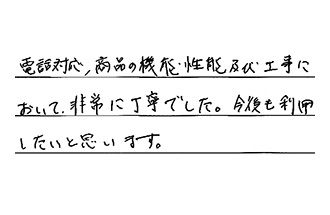 電話対応,商品の機能・性能及び工事に
おいて、非常に丁寧でした。今後も利用
したいと思います。